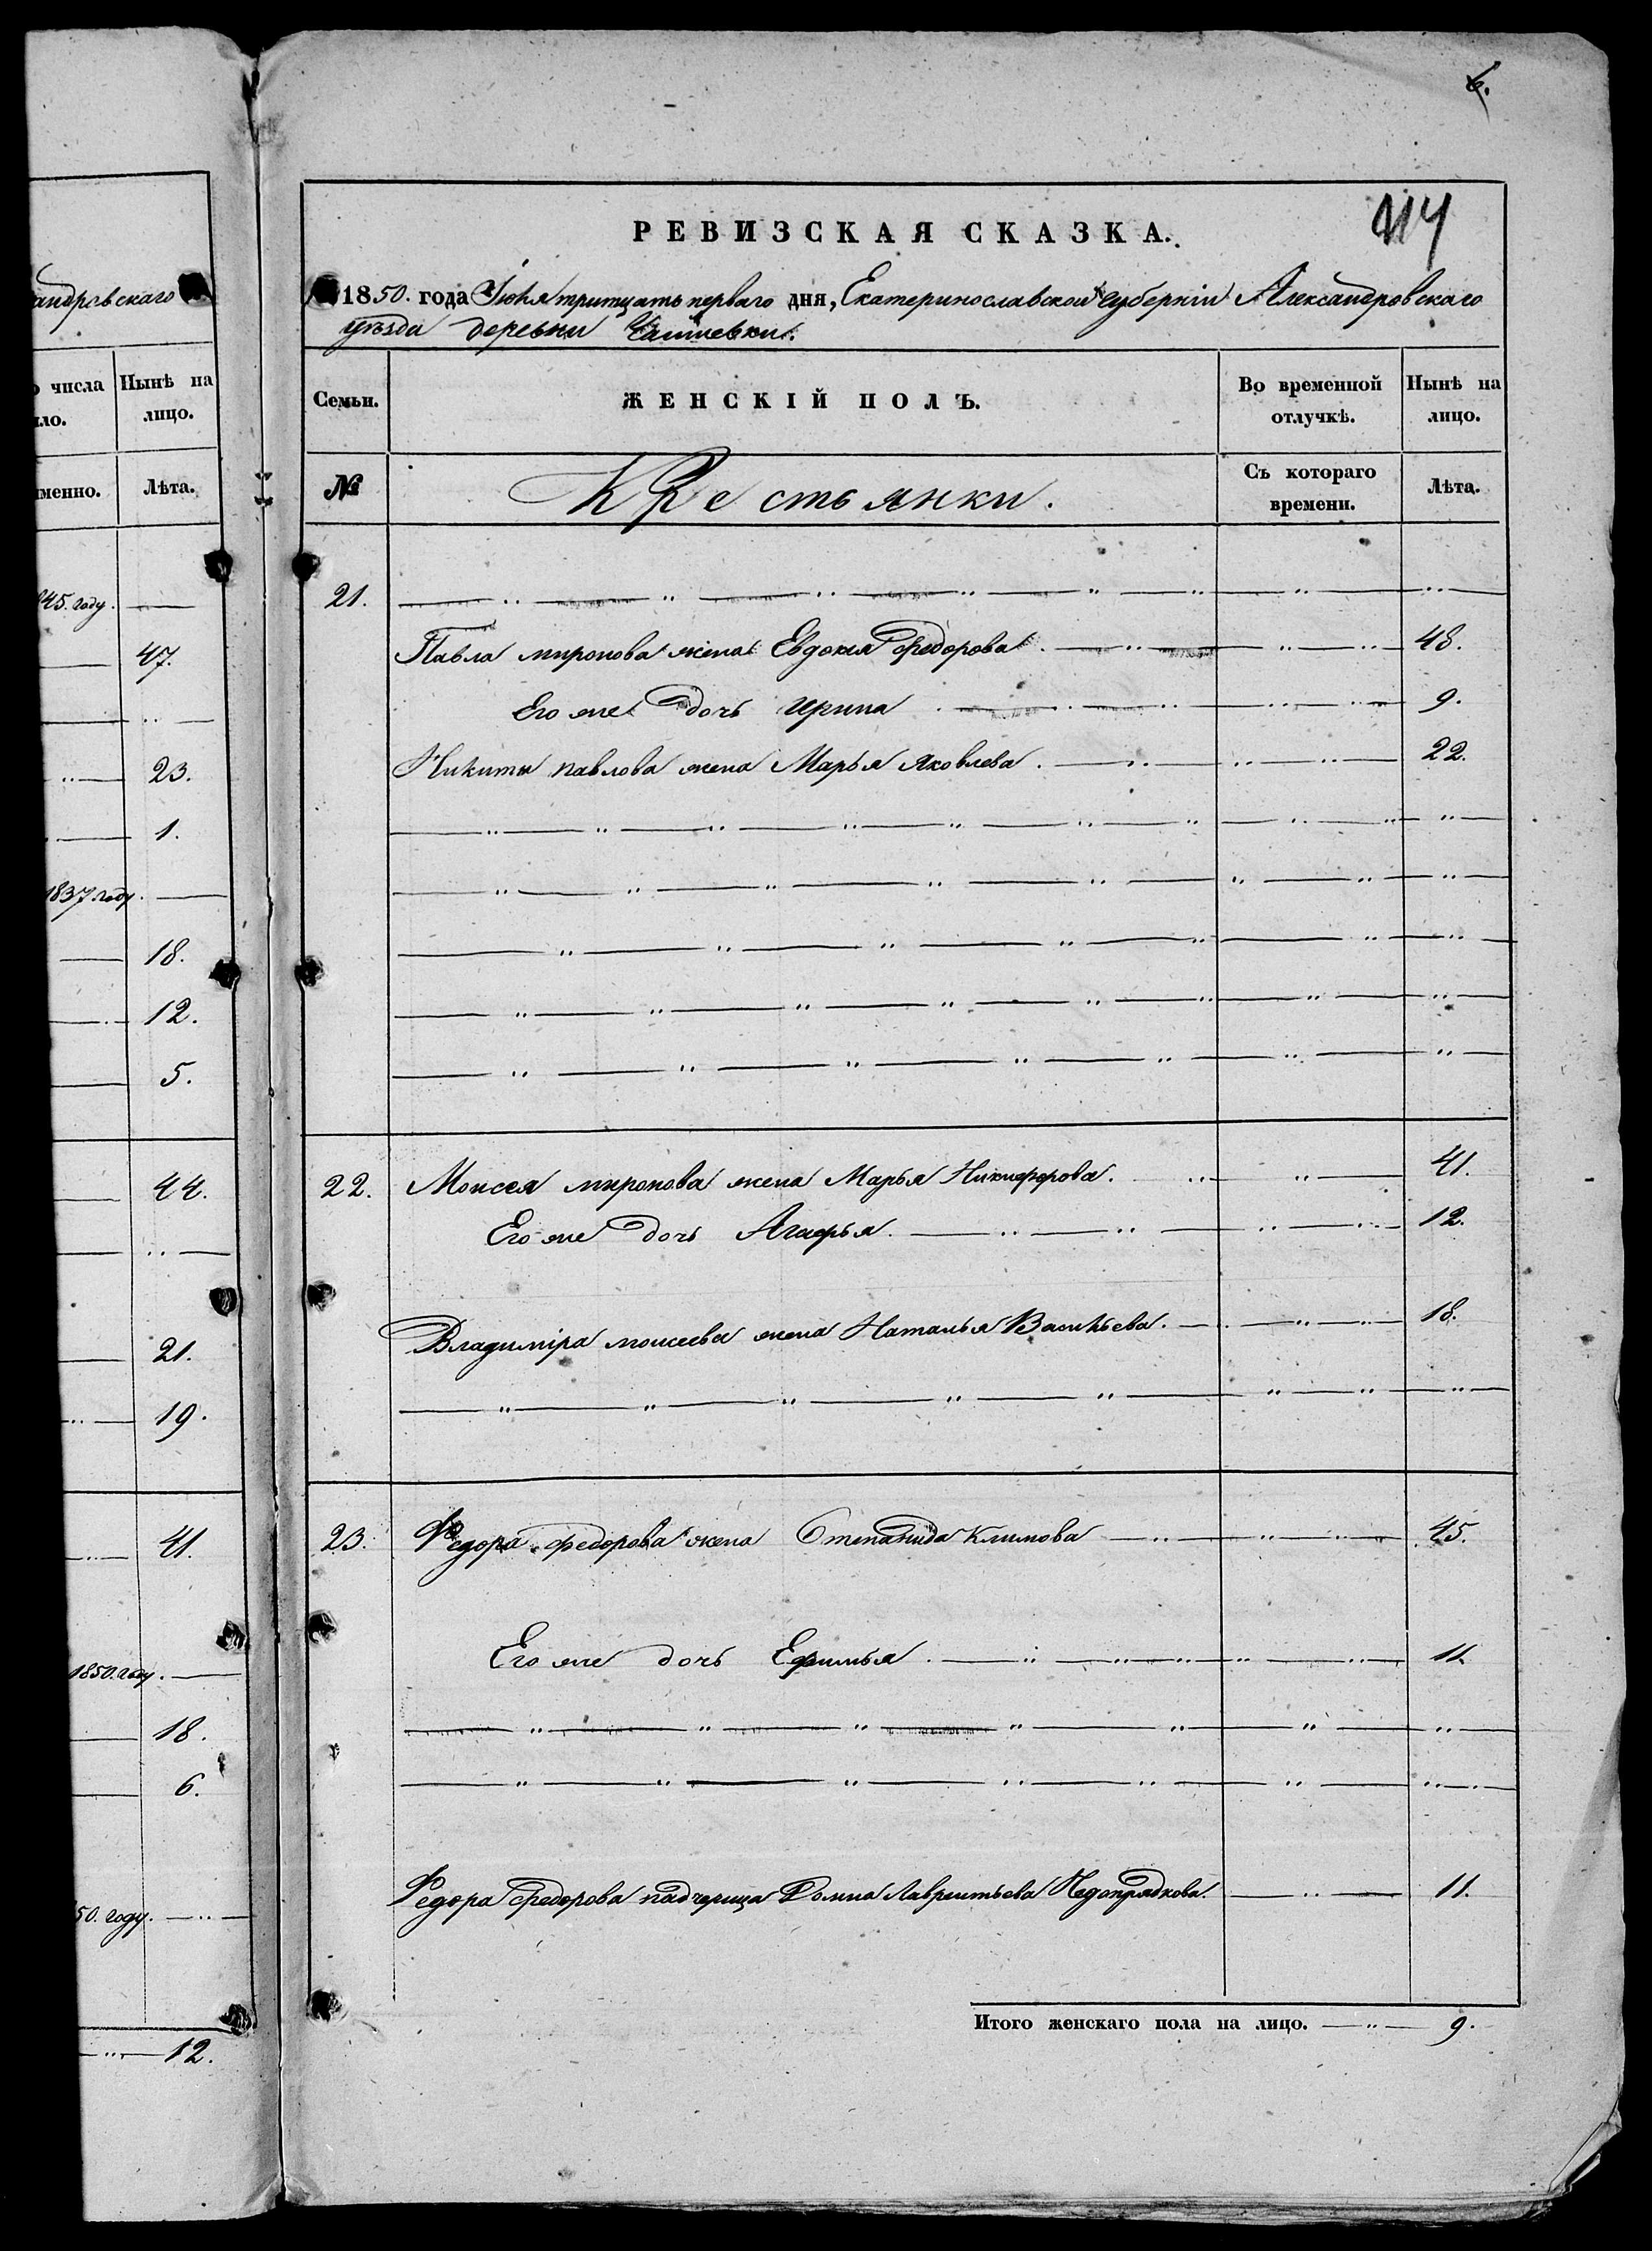 6.
114
РЕВИЗСКАЯ СКАЗКА.
1850. года Іюля тритцать перваго дня, Екатеринославской губерніи Александровскаго
уѣзда деревни
Семьи. ЖЕНСКІЙ ПОЛЪ. Во временной отлучкѣ. Нынѣ на лицо.
№ Крестьянки. Съ котораго времени. Лѣта.
21.
Павла миронова жена Евдокия федорова 48.
Его же дочь Ирина 9.
Никиты павлова жена Марья Яковлева. 22.
22. Моисея миронова жена Марья Никифорова. 41.
Его же дочь Агафья. 12.
Владиміра моисеева жена Наталья Васильева. 18.
23. Федора федорова жена Степанида Климова 45.
Его же дочь Ефимья. 11.
Федора федорова падчерица Домна Лаврентьева Недопрядкова. 11.
Итого женскаго пола на лицо. 9.
андровскаго
числа
Нынѣ на
лицо.
ло.
менно. Лѣта.
45. году.
47.
23.
1.
1837 году.
18.
12.
5.
44.
21.
19.
41.
1850. году.
18.
6.
50. году.
12.